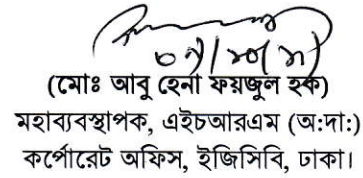 (মোঃ আবু হেনা ফয়জুল হক)
মহাব্যবস্থাপক, এইচআরএম (অ:দা:)
কর্পোরেট অফিস, ইজিসিবি, ঢাকা।